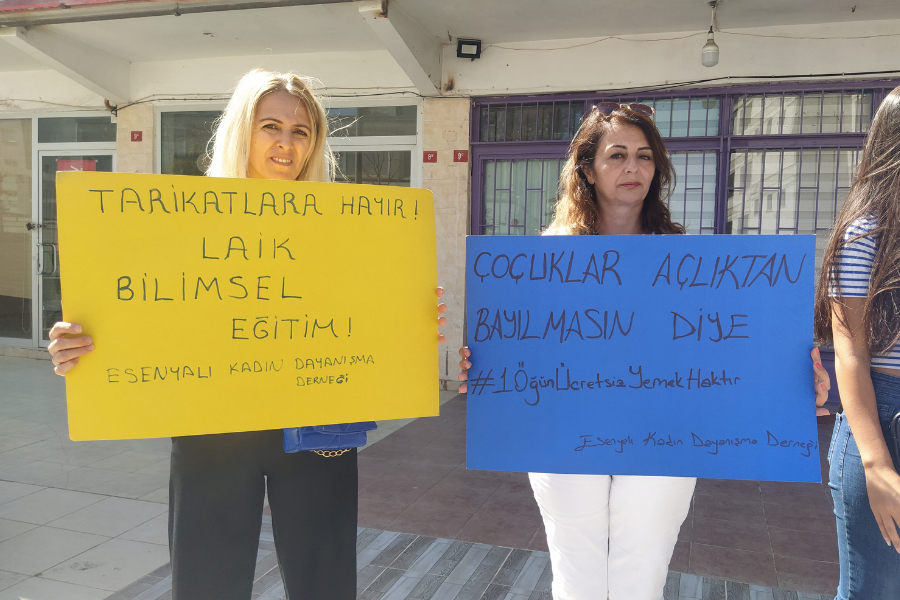 TARİKATLARA HAYIR!
LAİK
BİLİMSEL
EĞİTİM!
ESENYALI KADIN DAYANIŞMA
DERNEĞİ
ÇOÇUKLAR AÇLIKTAN
BAYILMASIN DİYE
#1ÖğünÜcretsizYemekHaktır
Esenyalı Kadın Dayanışma Derneği